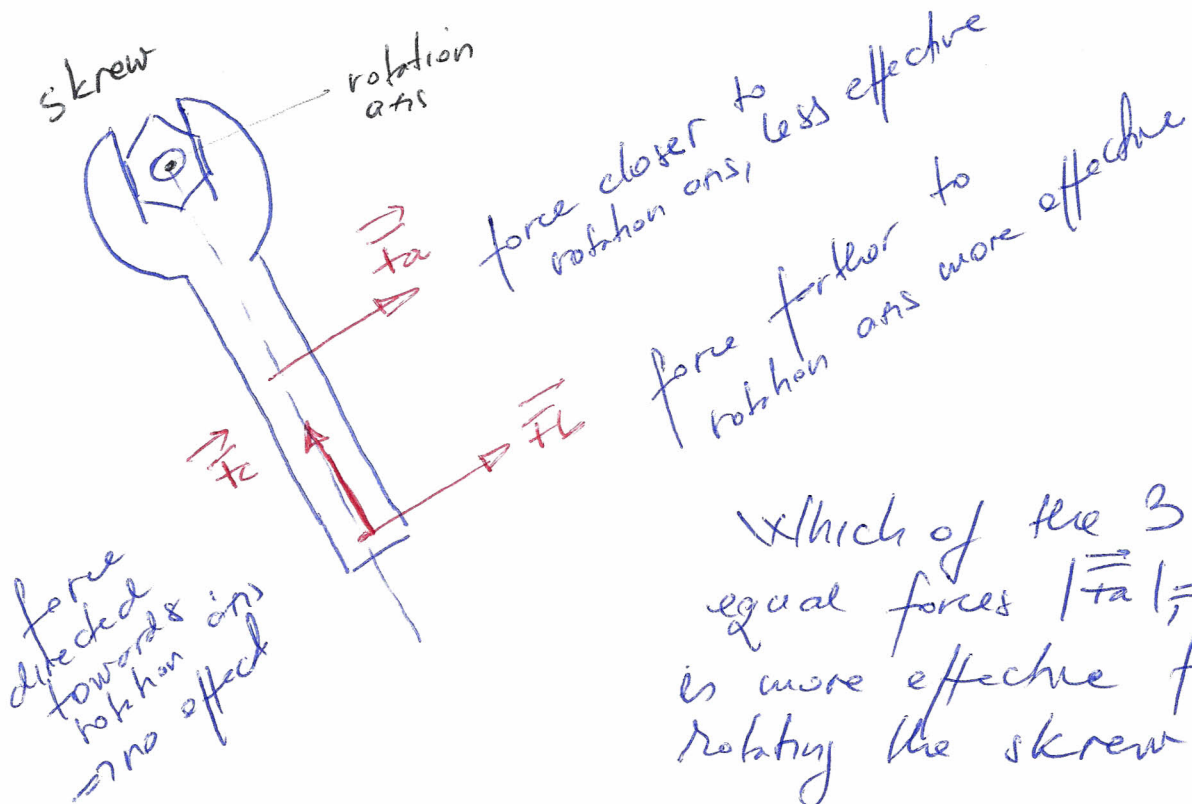 skrew
rotation
axis
force closer to
rotation axis, less effective
Fa
force farther to
rotation axis more effective
Fb
Fc
force
directed
towards axis
rotation
→ no effect
Which of the 3
equal forces |Fa|=
is more effective f
rotating the skrew